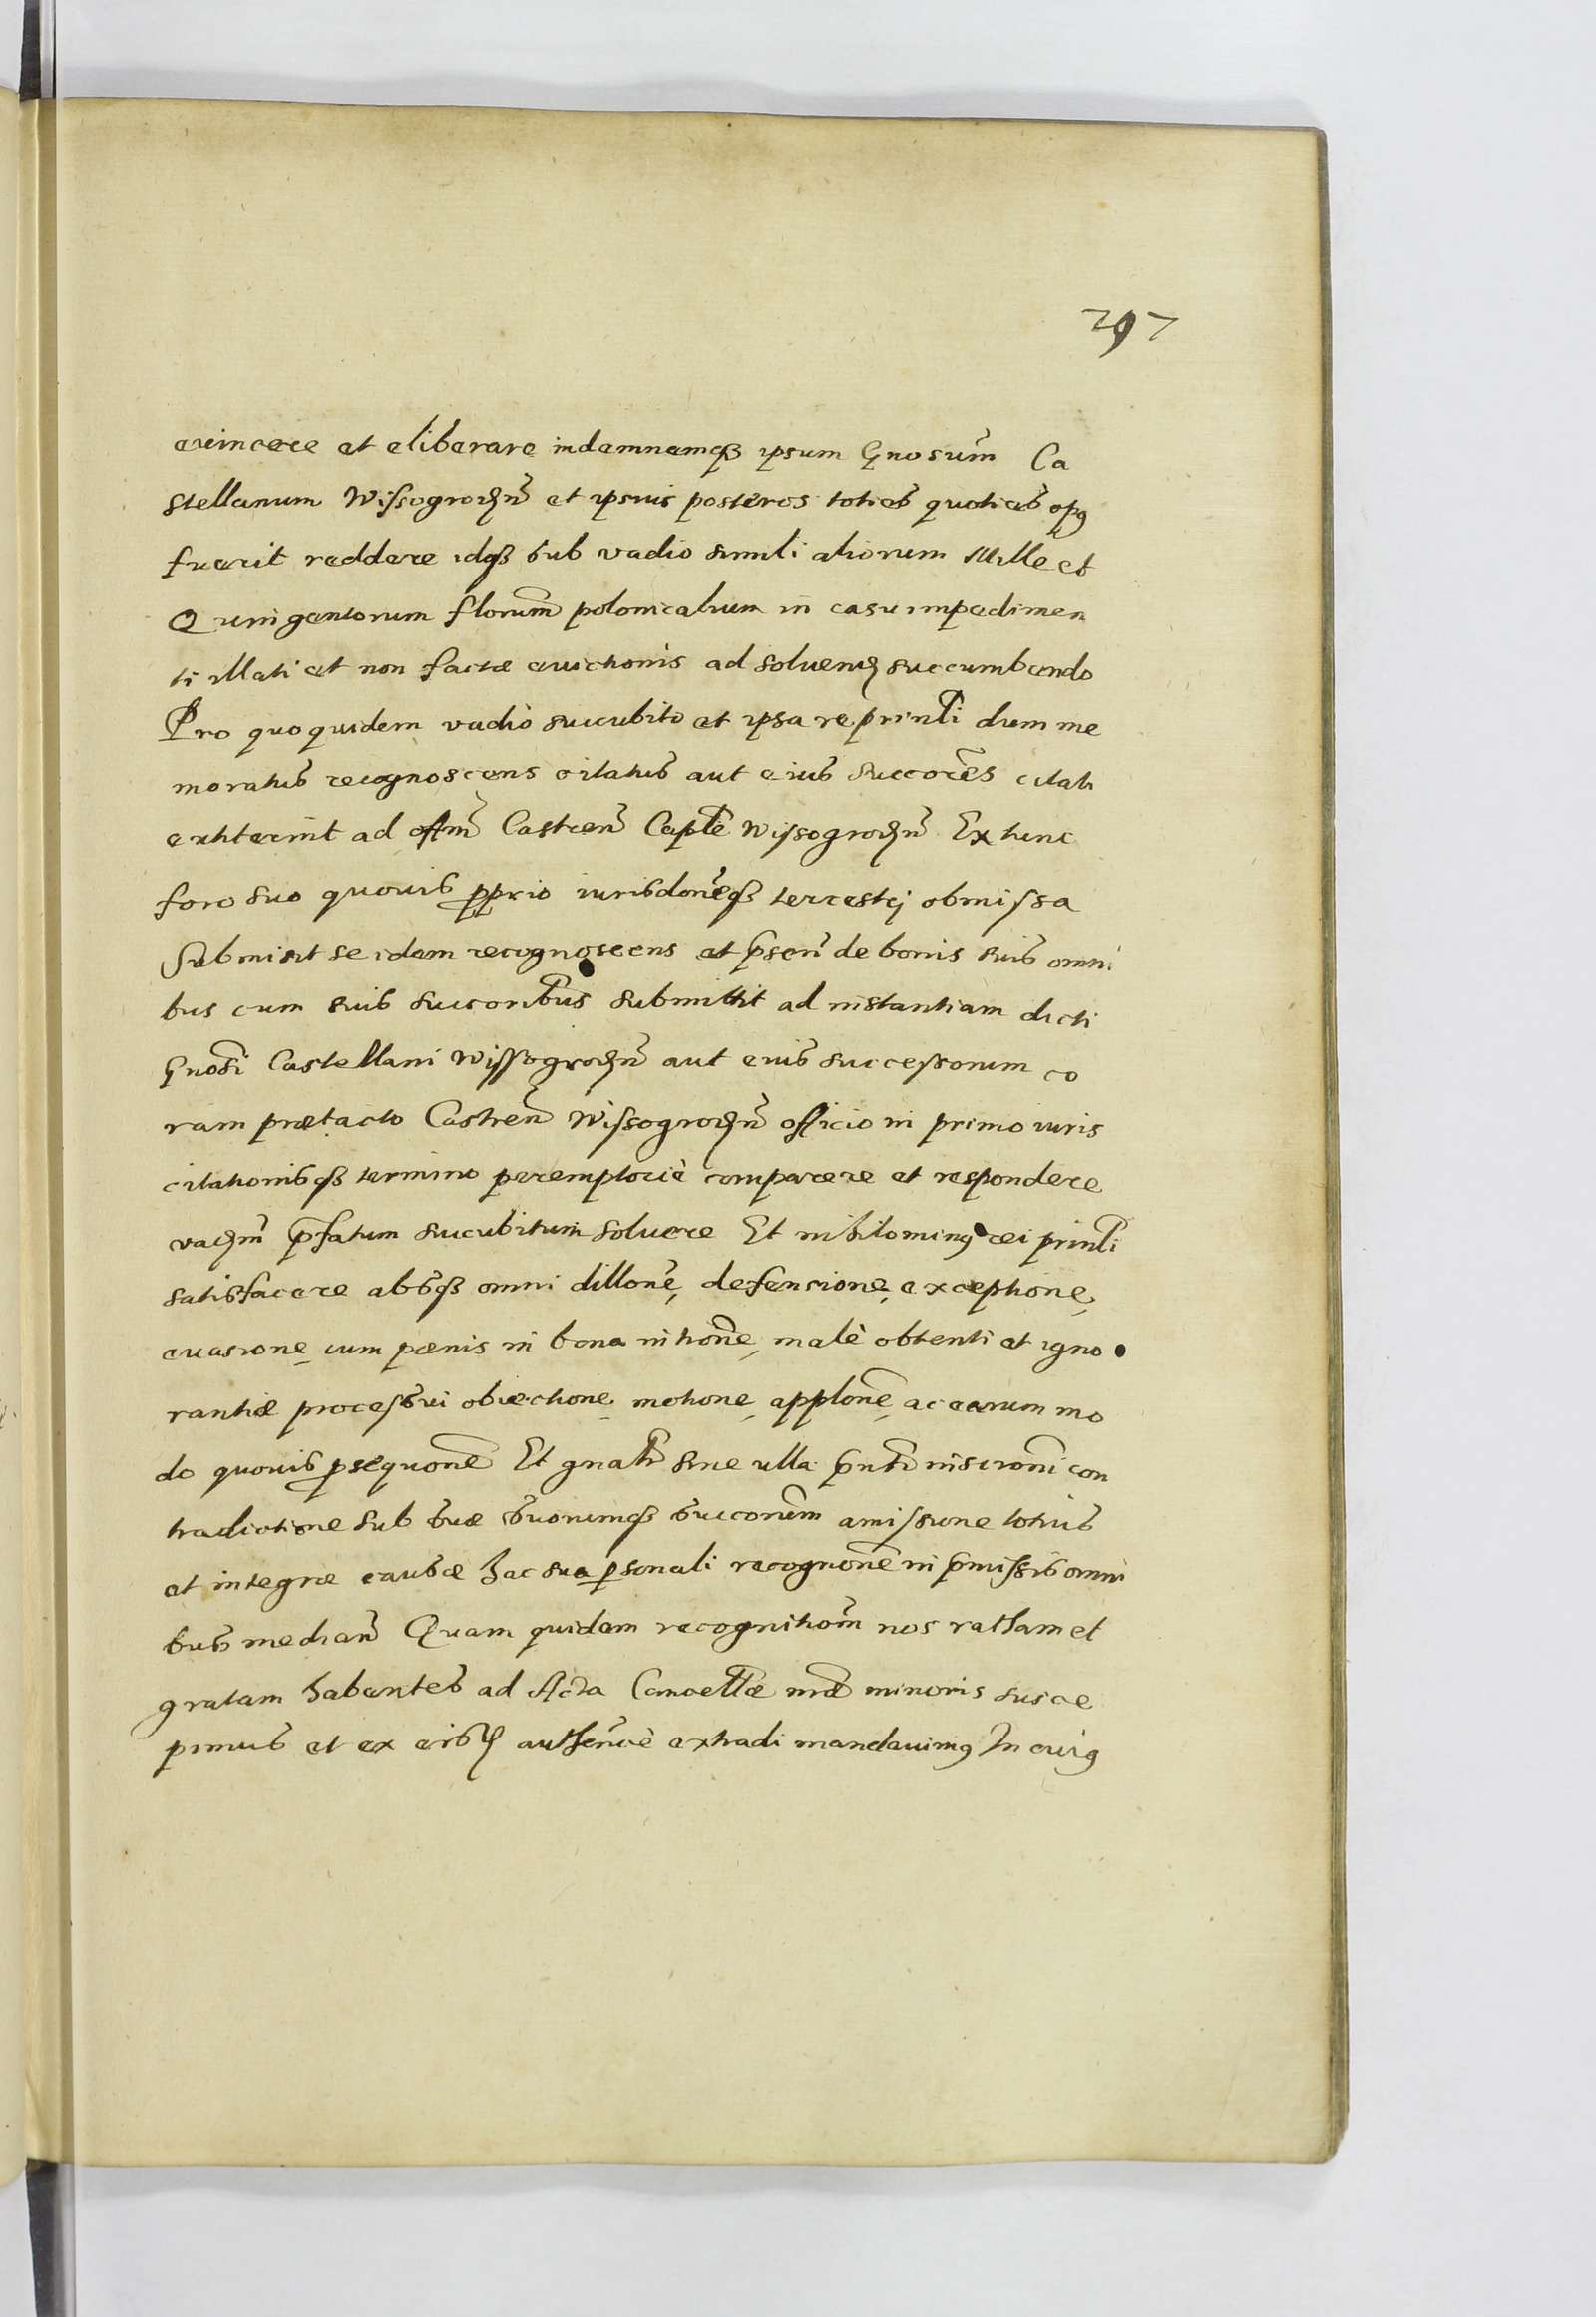 297
euincere et eliberare indemnemq₃ ipsum Gnosum̃ Ca
stellanum Wissogrodzn̄ et ipsius posteros toties quoties op9
fuerit reddere idq₃ sub vadio simili aliorum Mille et
Quingentorum florum̃ polonicalium in casu impedimen
ti illati et non factæ euictionis ad soluend succumbendo
Pro quo quidem vadio succubito et ipsa re prinlĩ dum me
moratus recognoscens citatus aut eius succores̃ citati
extiterint ad offm̃ Castren̄ Caplẽ Wissogrodzn̄ Ex tunc
foro suo quouis pprio iurisdoneq̃₃ terrestrj obmissa
Submisit se idem recognoscens et p̃sen̄ de bonis suis omni
bus cum suis succoribus̃ submittit ad instantiam dicti
Gnosĩ Castellani Wissogrodzn̄ aut eius successorum co
ram prætacto Castren̄ Wissogrodzn̄ officio in primo iuris
citationisq₃ termino peremptorie comparere et respondere
vadm̃ p̃fatum succubitum soluere Et nihilomin9 rei prinlĩ
satisfacere absq₃ omni dillonẽ, defensione, exceptione,
euasione, cum pænis in bona intronẽ, malè obtenti et igno
rantiæ processui obiectione, motione, applonẽ, ac earum mo
do quouis psequonẽ Et gnalr̃ sine ulla p̃nti inscronĩ con
tradictione sub suæ suorumq₃ succorum̃ amissione totius
et integræ causæ hac sua psonali recognonẽ in p̃missis omni
bus median̄ Quam quidem recognitiom̃ nos ratham et
gratam habentes ad Acta Cancellæ̃ nræ̃ minoris susce
pimus et ex eisd authenticè extradi mandauim9 In cui9